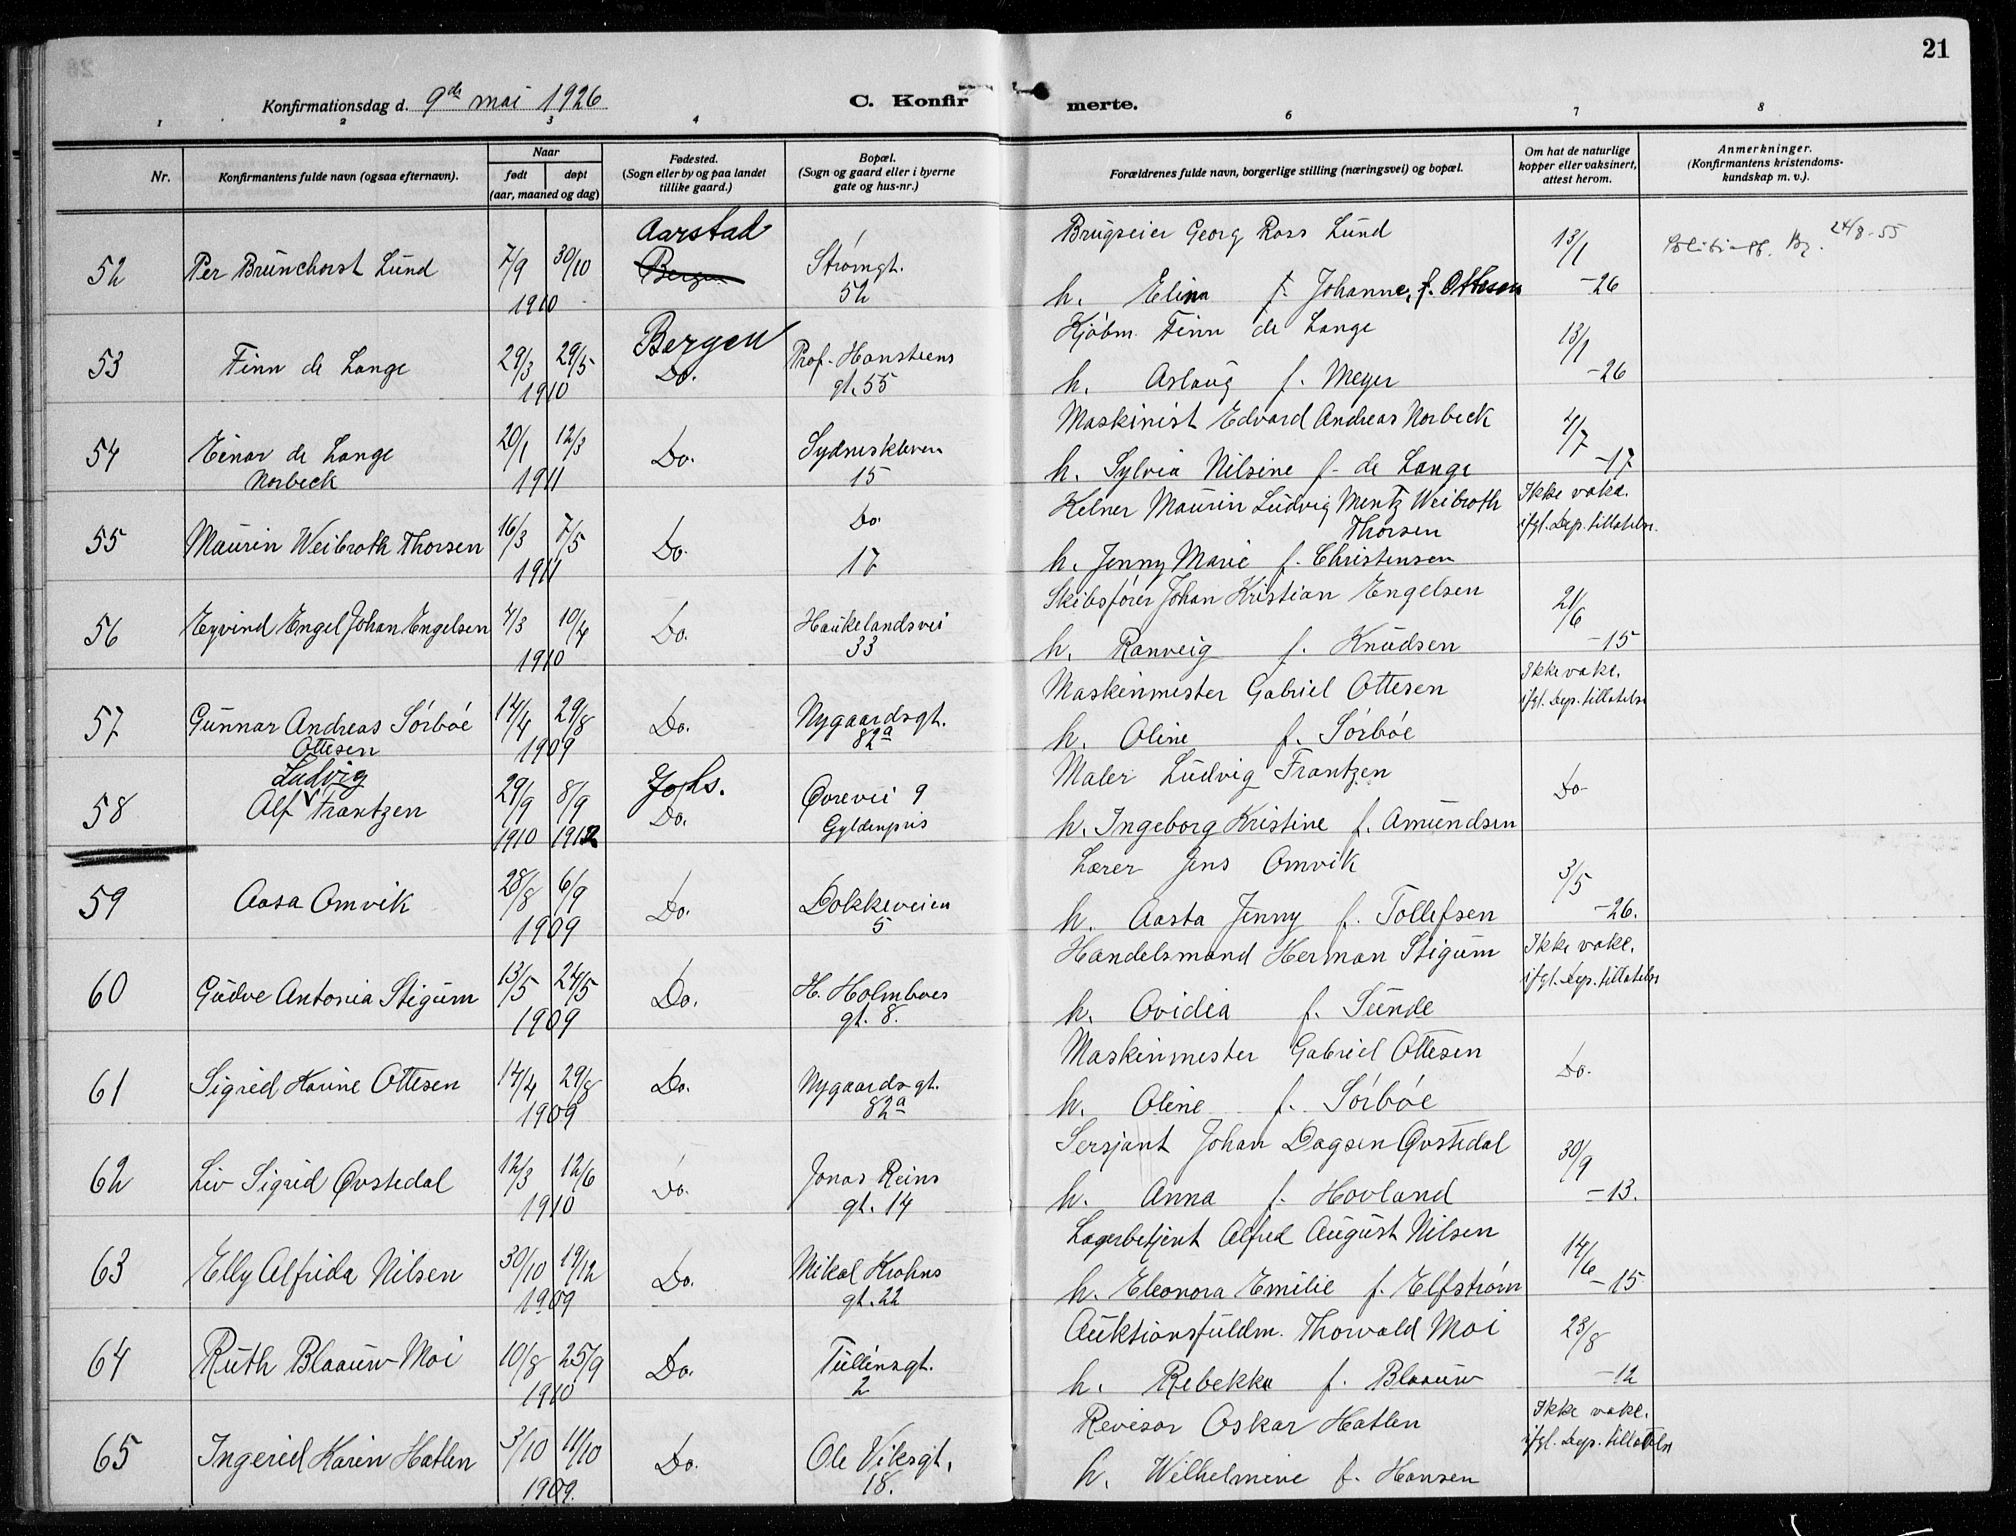 21
Konfirmationsdag d. 9de mai 1926
C. Konfirmerte.
1 2 3 4 6 7 8
Nr.
Konfirmantens fulde navn (ogsaa efternavn).
Naar
født
døpt
(aar, maaned og dag)
Fødested.
(Sogn eller by og paa landet
tillike gaard.)
Bopæl.
(Sogn og gaard eller i byerne
gate og hus-nr.)
Forældrenes fulde navn, borgerlige stilling (næringsvei) og bopæl.
Om hat de naturlige
kopper eller vaksinert,
attest herom.
Anmerkninger.
(Konfirmantens kristendoms-
kundskap m. v.).
52
Per Brunchorst Lund
7/9 30/10
1910
Aarstad
Bergen
Strømgt.
52
Brugseier Georg Ross Lund
h. Elina Johanne, f. Ottesen
13/1
-26
24/8-55
53
Finn de Lange
29/3 29/5
1910
Bergen
Do.
Prof. Hansteens
gt. 55
Kjøbm. Finn de Lange
h. Aslaug f. Meyer
13/1
-26
54
Einar de Lange
Norbeck
20/1 12/3
1911
Do.
Sydneskleven
15
Maskinist Edvard Andreas Norbeck
h. Sylvia Nilsine f. de Lange
4/7
-17
55
Maurin Weibroth Thorsen
16/3 7/5
1911
Do.
Do.
17
Kelner Maurin Ludvig Mentz Weibroth
Thorsen
h. Jenny Marie f. Christensen
Ikke vakc.
ifgl. Dep. tillatelse
56
Eyvind Engel Johan Engelsen
4/3 10/4
1910
Do.
Haukelandsvei
33
Skibsfører Johan Kristian Engelsen
h. Ranveig f. Knudsen
21/6
-15
57
Gunnar Andreas Sørbøe
Ottesen
14/4 29/8
1909
Do.
Nygaardsgt.
82a
Maskinmester Gabriel Ottesen
h. Oline f. Sørbøe
Ikke vakc.
ifgl. Dep. tillatelse
58
Ludvig
Alf Frantzen
29/9 8/9
1910 1912
Johs.
Do.
Øvrevei 9
Gyldenpris
Maler Ludvig Frantzen
h. Ingeborg Kristine f. Amundsen
Do
59
Aasa Omvik
28/8 6/9
1909
Do.
Dokkeveien
5
Lærer Jens Omvik
h. Aasta Jenny f. Tollefsen
3/5
-26.
60
Gudve Antonia Stigum
13/5 24/5
1909
Do.
H. Holmboes
gt. 8.
Handelsmand Herman Stigum
h. Ovidia f. Sunde
Ikke vakc.
ifgl. Dep. tillatelse
61
Sigrid Karine Ottesen
14/4 29/8
1909
Do.
Nygaardsgt.
82a
Maskinmester Gabriel Ottesen
h. Oline f. Sørbøe
Do.
62
Liv Sigrid Øvstedal
12/3 12/6
1910
Do.
Jonas Reins
gt. 14
Sersjant Johan Dagsen Øvstedal
h. Anna f. Hovland
30/9
-13.
63
Elly Alfrida Nilsen
30/10 19/12
1909
Do.
Mikal Krohns
gt. 22
Lagerbetjent Alfred August Nilsen
h. Eleonora Emilie f. Elfstrøm
14/6
-15
64
Ruth Blaauw Moi
10/8 25/9
1910
Do.
Tullinsgt.
2
Auktionsfuldm. Thorvald Moi
h. Rebekka f. Blaauw
23/8
-12
65
Ingerid Karin Hatlen
3/10 11/10
1909.
Do.
Ole Viksgt.
18.
Revisor Oskar Hatlen
h. Wilhelmine f. Hansen
Ikke vakc.
ifgl. Dep. tillatelse